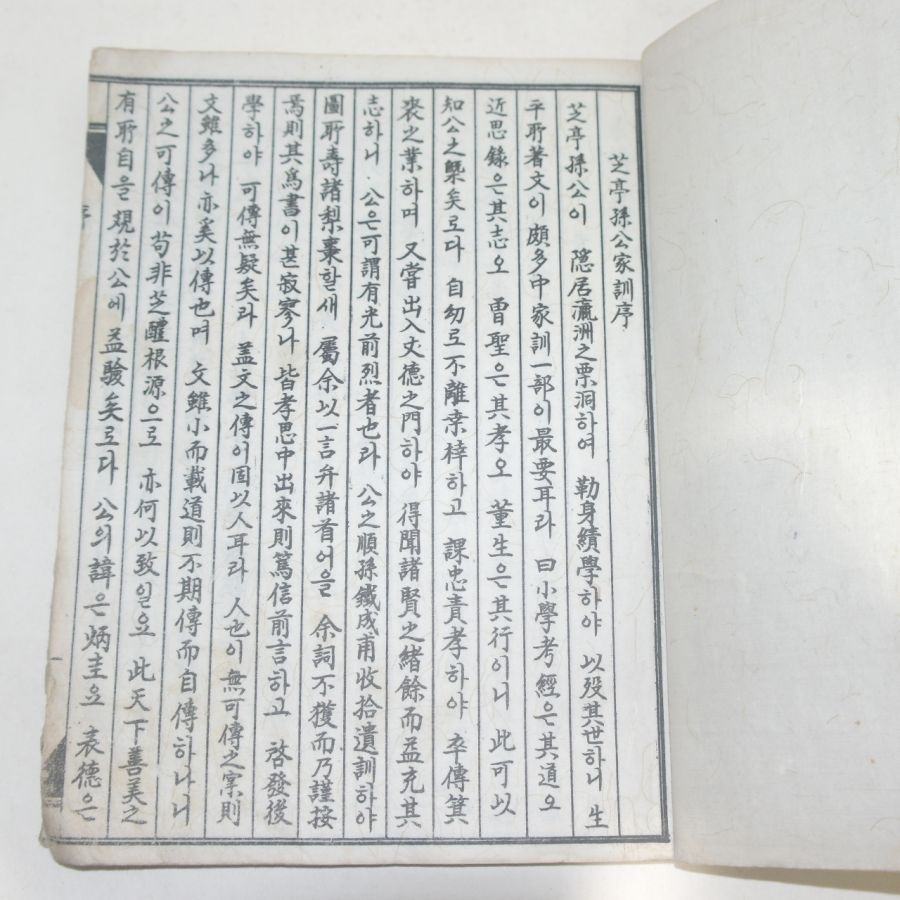 芝亭孫公家訓序
芝亭孫公이 隐居瀛洲之栗洞하여 勤身績學하야 以歿其世하니 生
平所著文이 頗多中 家訓一部이 最要耳라 曰小學考經은 其道오
近思錄은 其志오 曾聖은 其孝오 董生은 其行이니 此可以
知公之槩矣로다 自幼로 不離桒梓하고 課忠責孝하야 卒傳箕
裘之業하며 又嘗出入丈德之門하야 得聞諸賢之緖餘而益充其
志하니 公은 可謂有光前烈者也라 公之順孫鐵成甫收拾遺訓하야
圖所壽諸梨棗할새 屬余以一言弁諸首어을 余詞不獲而乃謹按
焉則其爲書이 甚寂寥나 皆孝思中出來則篤信前言하고 啓發後
學하야 可傳無疑矣라 盖文之傳이 固以人耳라 人也이 無可傳之宲則
文雖多나 亦奚以傳也며 文雖小而載道則不期傳而自傳하나니
公之可傳이 苟非芝醴根源으로 亦何以致일요 此天下善美之
有所自을 䂓於公에 益驗矣로다 公의 諱은 炳圭요 袁德은
序
一